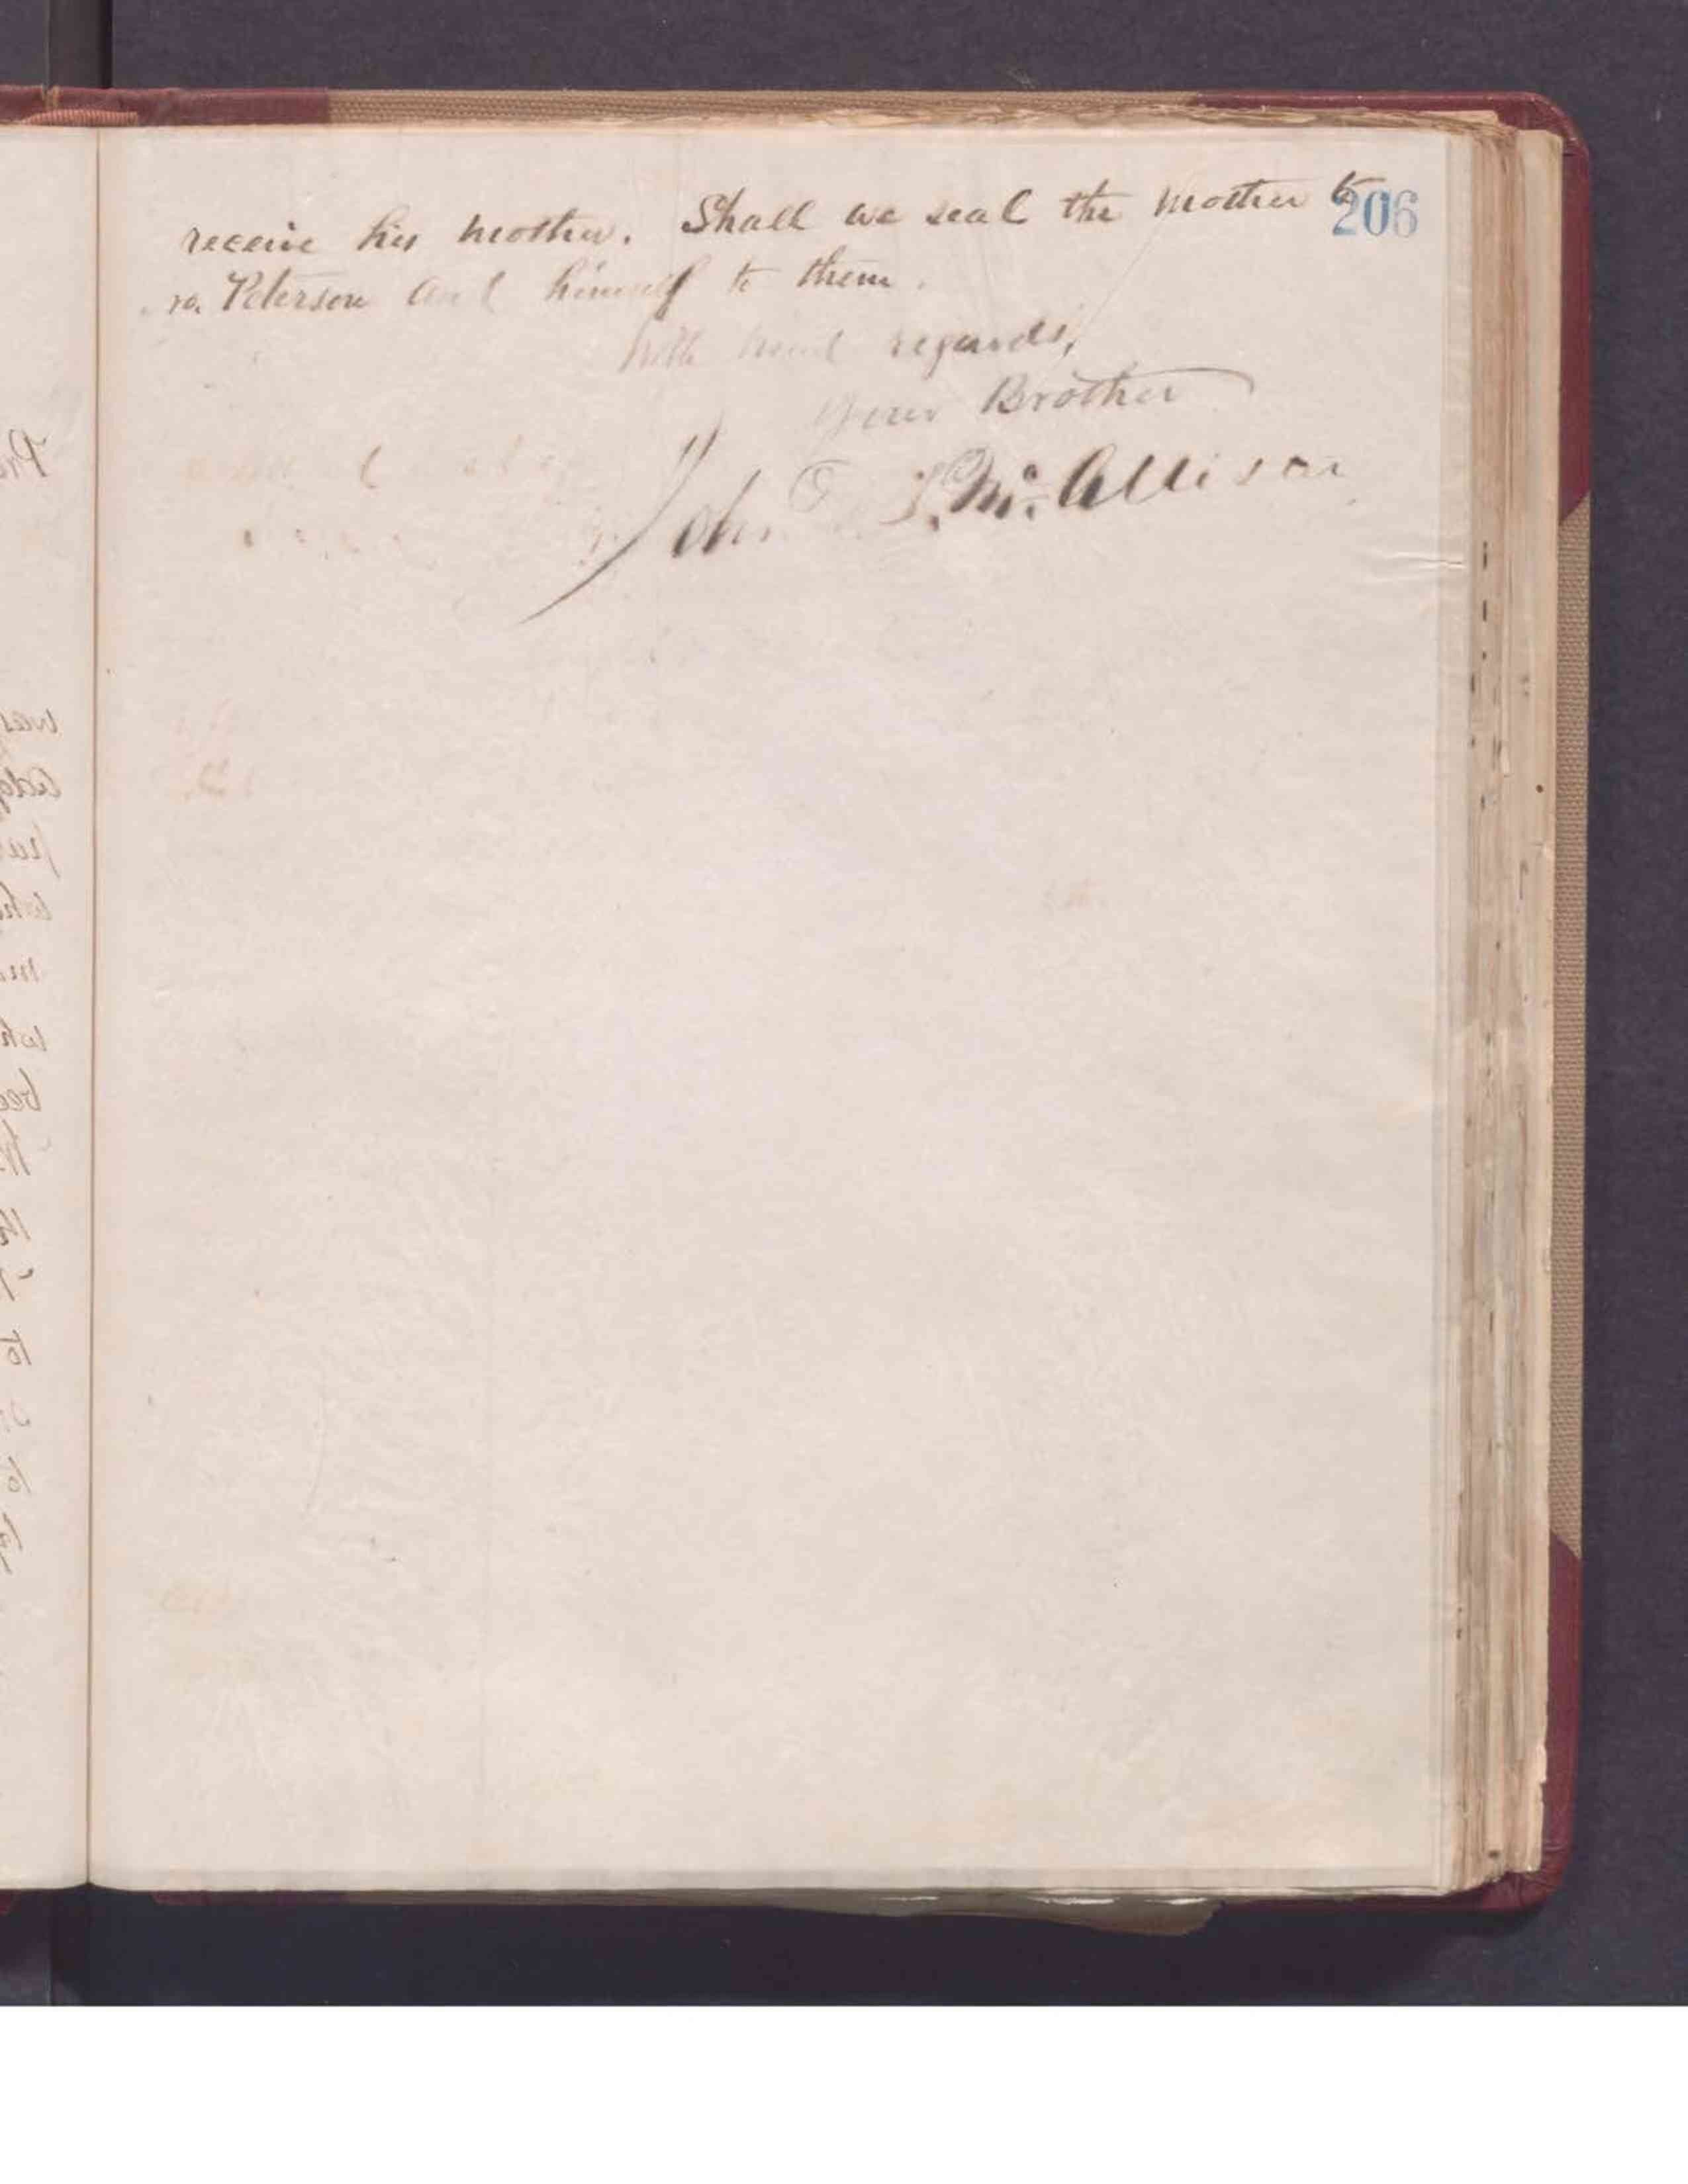 206
receive his mother. Shall we seal the mother to
ro. Peterson and himself to them.
With kind regards,
Your Brother
John D. T. McAllister